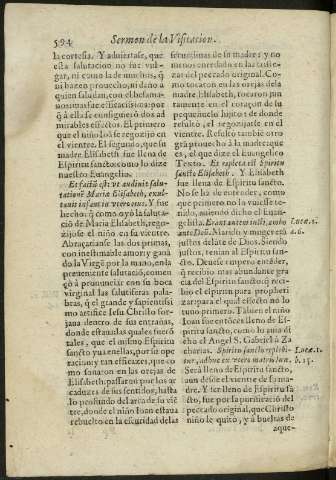 594 Sermon de la Visitacion.
la cortesia. Y aduiertase, que
esta salutacion no fue vul-
gar, ni como la de muchos, q̃
ni hazen prouecho, ni daño a
quien saludan, con el besamã
nos: mas fue efficacissima: por
q̃ a ella se consiguieró dos ad
mirables effectos. El primero
que el niño Ioã se regozijo en
el vientre. El segundo, que su
madre Elisabeth fue llena de
Espiritu sancto: como lo dize
nuestro Euangelio.
Et factũ est: vt audiuit salu-
tationẽ Maria Elisabeth, exul-
tauit infans in vtero eius. Y fue
hecho. q̃ como oyó la salutaciõ
de Maria Elisabeth, rego-
zijose el niño en su vientre.
Abraçauanse las dos primas,
con inestimable amor: y ganã
do la Virgẽ por la mano, en la
preueniente salutació, comen
çó a pronunciar con su boca
virginal las salutiferas pala-
bras, q̃ el grande y sapientissi
mo artifice Iesu Christo for-
jaua dentro de sus entrañas,
donde estaua: las quales fuerõ
tales, que el mismo Espiritu
sancto yua en ellas, por su ope
racion: y tan efficazes, que co
mo sonaron en las orejas de
Elisabeth: passaron por los ar
caduzes de sus sentidos, hasta
lo profundo del arca de su vie
tre, donde el niño Ioan estaua
rebuelto en la escuridad de las
secundinas de su madre: y no
menos enredado en las tinie-
zas del peccado original. Co-
mo tocaron en las orejas de la
madre, en esse punto tocaron
juntamente en el coraçon de su
pequeñuelo hijito: de donde
resultó, que el se regozijase en
el vientre. Resultó tambié otro
gra prouecho à la madre: que
es, el que dize el Euangelico
Texto. Et repleta est Spiritu
sancto Elisabeth. Y Elisabeth
fue llena de Espiritu sancto.
No se ha de entender, como
que primero no la vuiesse te-
nido, auiendo dicho el Euan-
gelista. Erant autem iusti, ambo
ante Deũ. Marido y muger erã
justos delãte de Dios. Siendo
justos, tenian al Espiritu san-
cto. Deuese empero entẽder,
q̃ recibio mas abundante gra
cia del Espiritu sancto: q̃ reci-
bio el espiritu para propheti
zar: para el qual effecto no lo
tuuo primero. Tãbien el niño
Ioan fue entõces lleno de Es-
piritu sancto, como lo auia di
cho el Angel S. Gabriel à Za
charias. Spiritu sancto replebi-
tur, adhuc ex vtero matris suæ.
Será lleno de Espiritu sancto,
aun desde el vientre de su ma-
dre. Y ser lleno de Espiritu san
cto, fue por la purificació del
peccado original, que Christo
niño le quitó, y à bueltas de
aque-
Luca. 1.
a. 6.
Luca. 1.
b. 15.